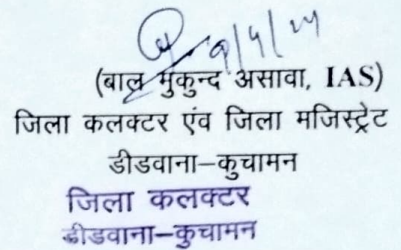 9/5/24
(बाल मुकुन्द असावा, IAS)
जिला कलक्टर एंव जिला मजिस्ट्रेट
डीडवाना–कुचामन
जिला कलक्टर
डीडवाना–कुचामन